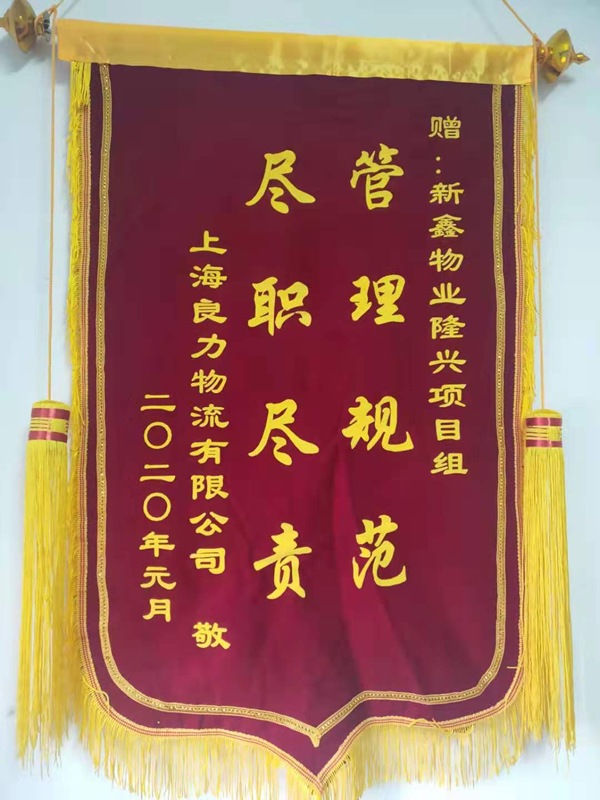 赠：新鑫物业隆兴项目组
管理规范
尽职尽责
上海良力物流有限公司 敬
二〇二〇年元月